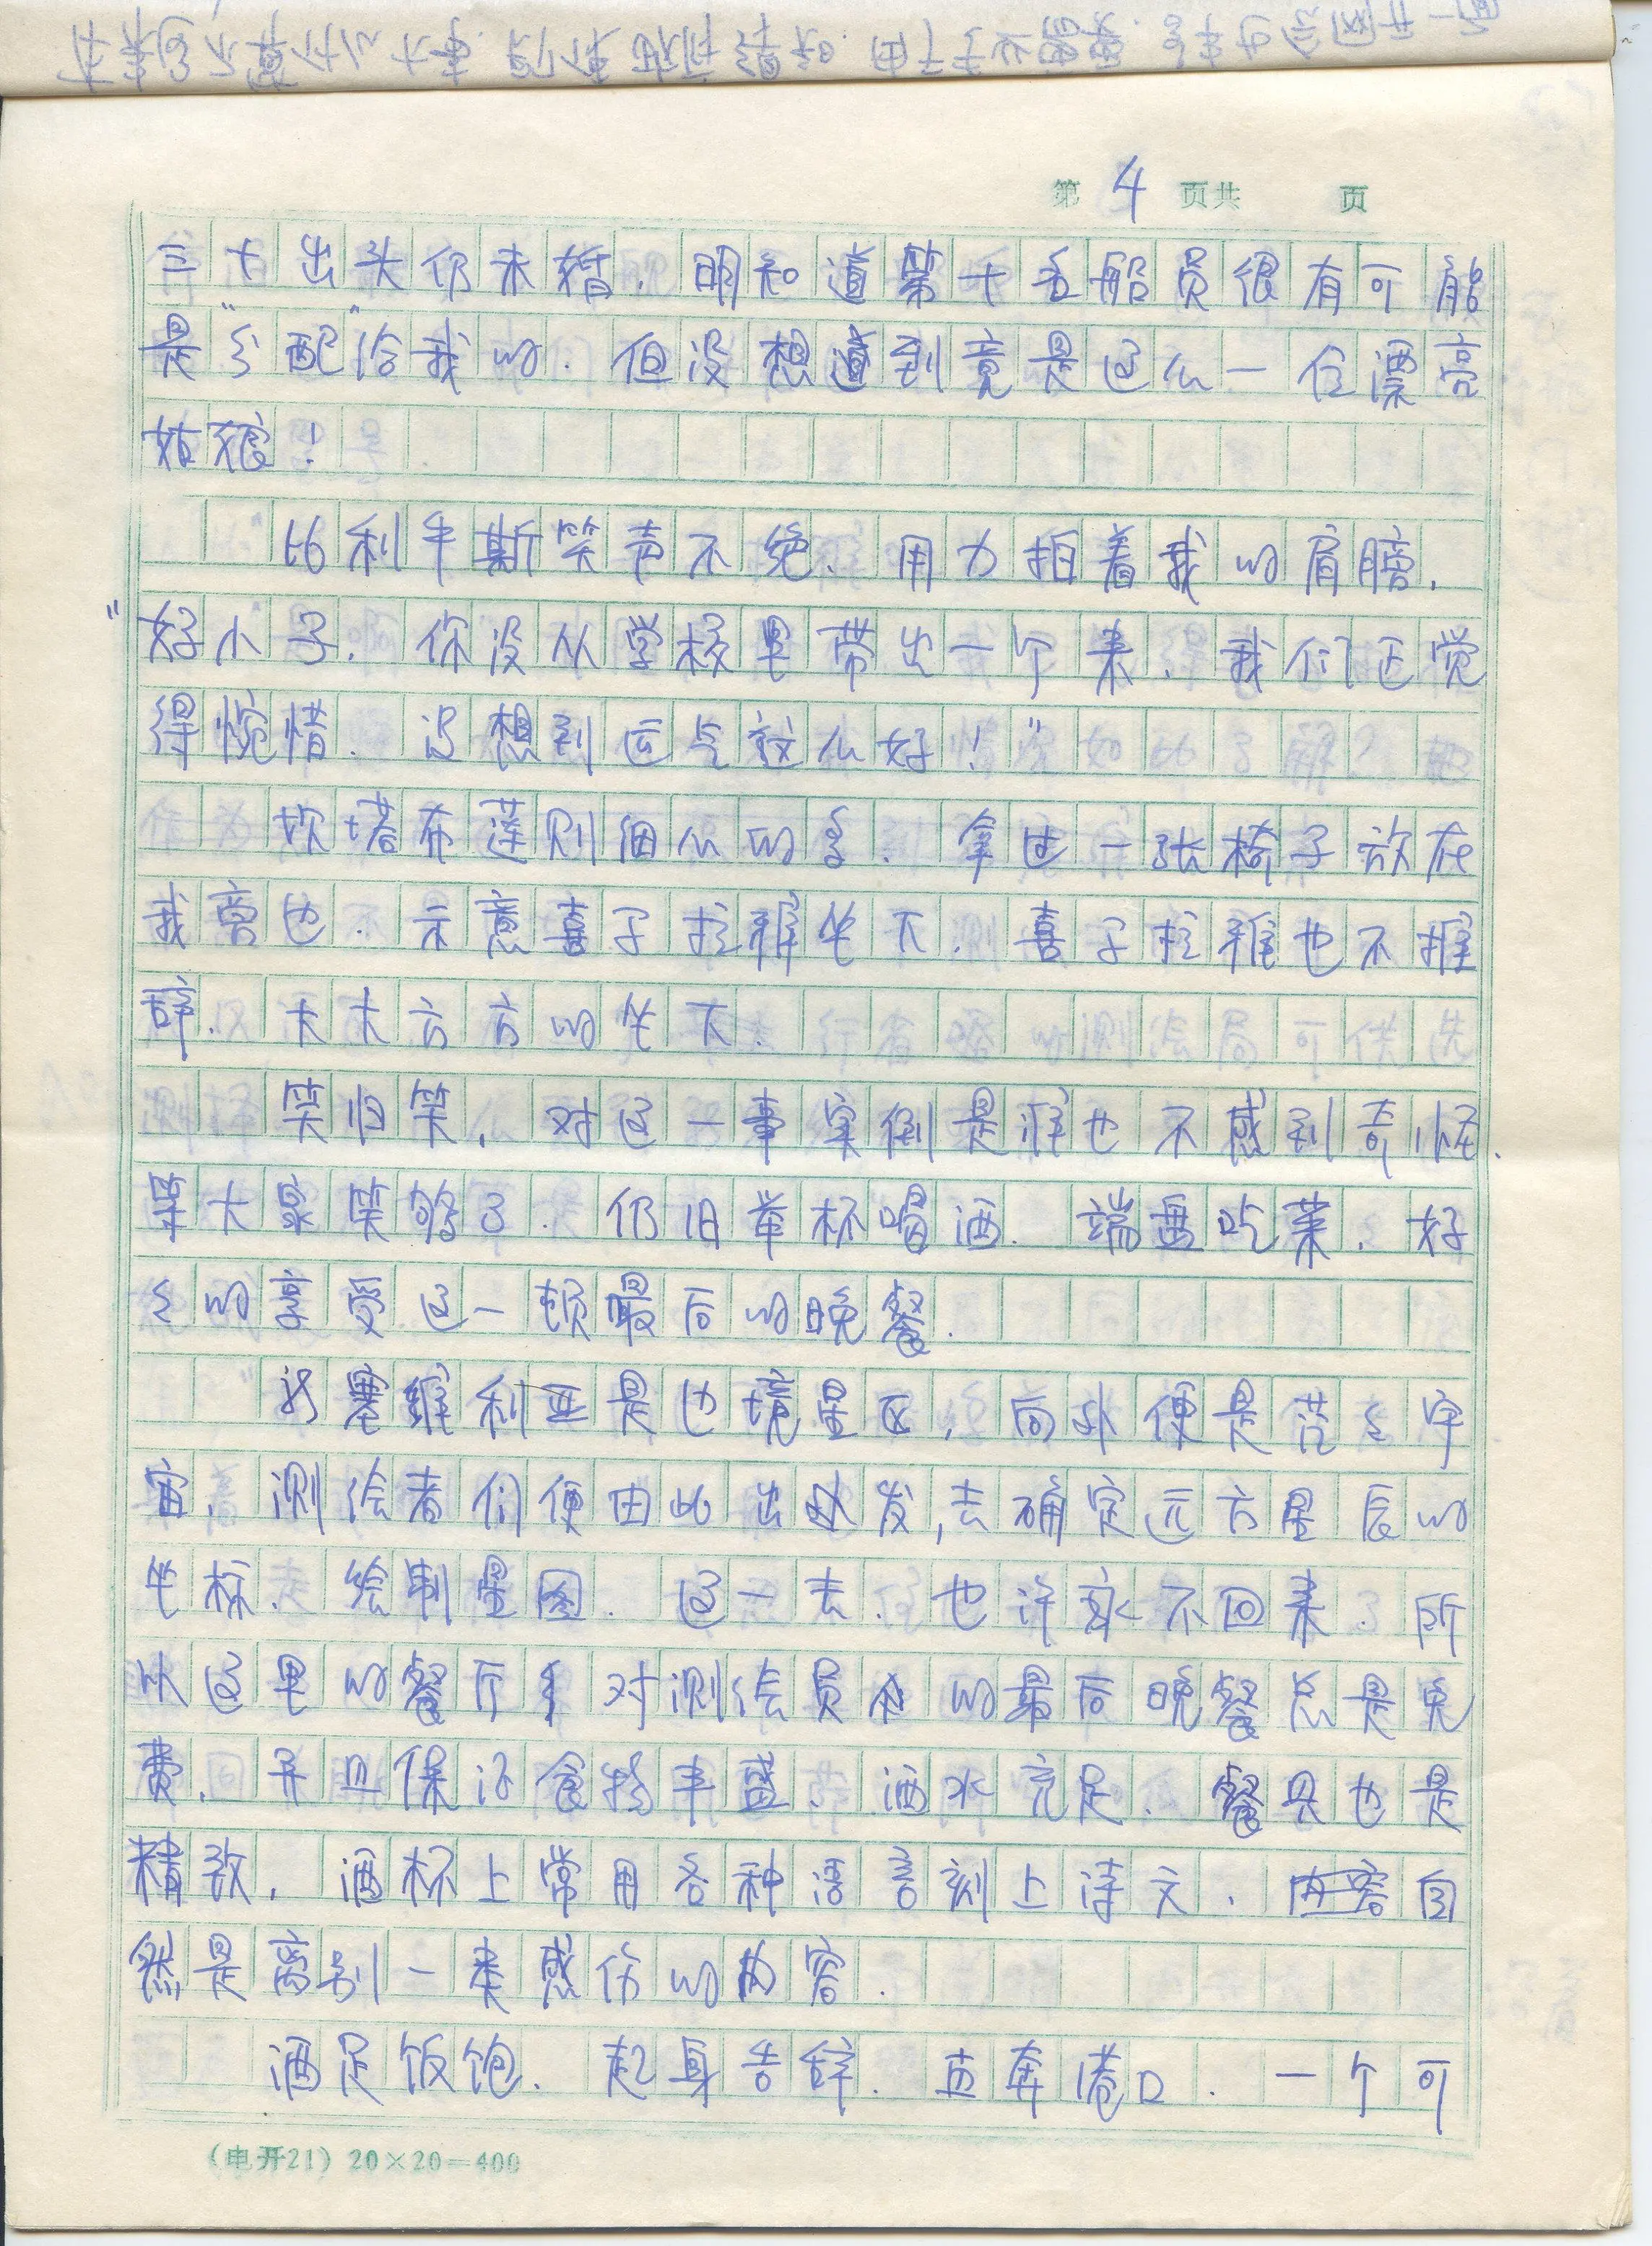 第 4 页共 页
三十出头仍未婚.明知道第十五船员很有可能
是“分配”给我的.但没想到竟是这么一位漂亮
姑娘!
比利半斯笑声不绝、用力拍着我的肩膀.
“好小子.你没从学校里带出一个来.我们还觉
得惋惜.没想到运气这么好!”
坎塔布莲则细心的多.拿过一张椅子放在
我旁边.示意喜子拉稚坐下.喜子拉稚也不推
辞.大大方方的坐下.
笑归笑,对这一事实倒是谁也不感到奇怪.
等大家笑够了.仍旧举杯喝酒.端盘吃菜.好
好的享受这一顿最后的晚餐.
塞维利亚是边境星区,向外便是茫茫宇
宙,测绘者们便由此出发,去确定远方星辰的
坐标、绘制星图.这一去.也许永不回来.所
以这里的餐厅对测绘员的最后晚餐总是免
费.并且保证食物丰盛、酒水充足.餐具也是
精致.酒杯上常用各种语言刻上诗文.自
然是离别一类感伤的内容.
酒足饭饱.起身告辞.直奔港口.一个可
(电开21)20×20=400